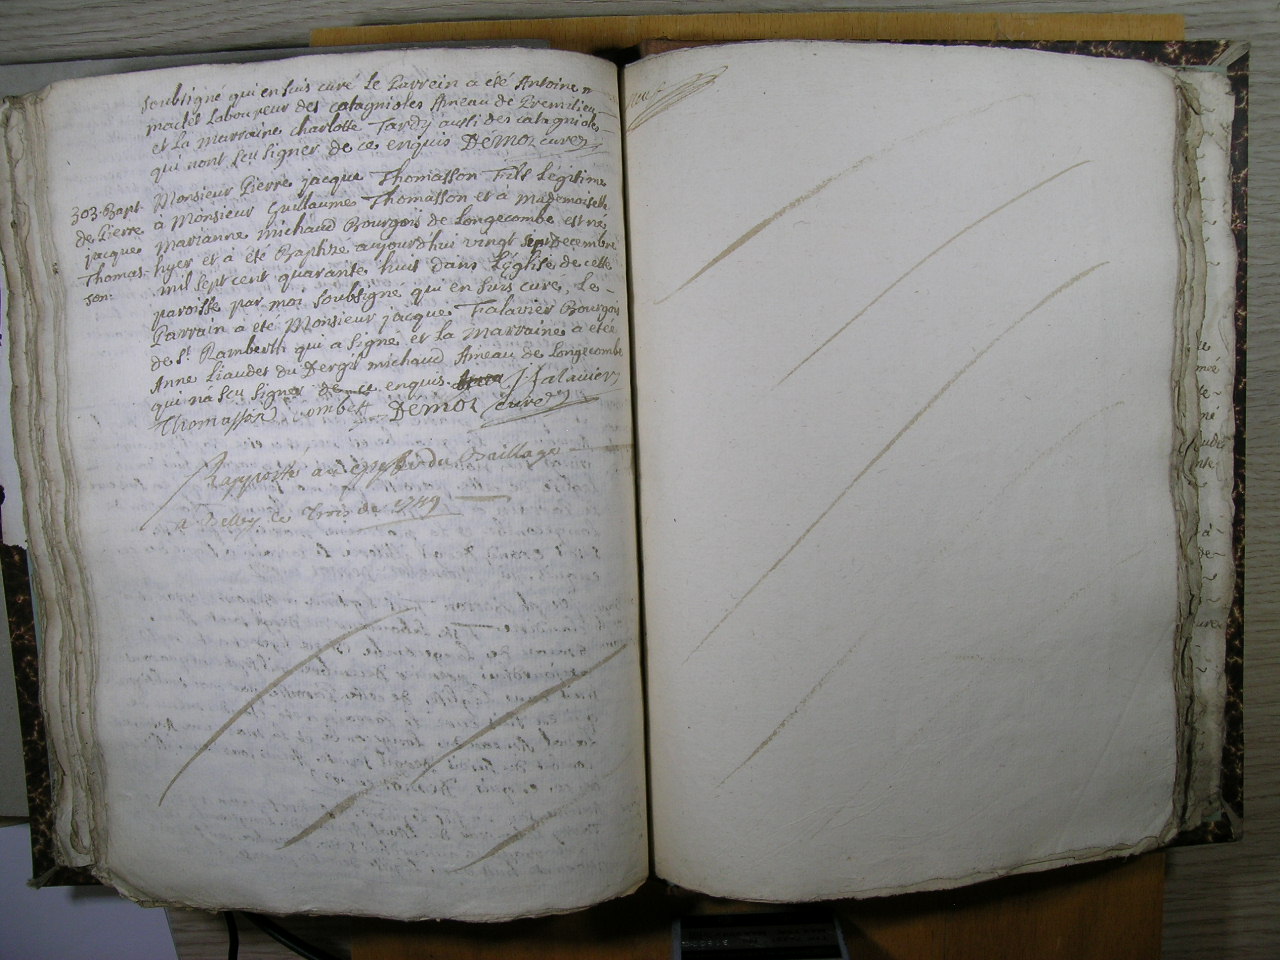 soubsigné qui en suis curé Le Parrein a eté Antoine
mactel Laboureur des catagnioles Ameau de Premilieu
et La marraine charlotte Tardy aussi des catagnioles
qui n'ont sçu signer de ce enquis Demoz curé
303. Bapt.
de Pierre
jacque
Thomas-
son.
Monsieur Pierre jacque Thomasson Fils Légitime
à Monsieur Guillaume Thomasson et à mademoiselle
Marianne michaud Bourgois de Longecombe est né
hyer et a été Baptizé aujourd'hui vingt sept decembre
mil sept cent quarante huit dans L'église de cette
paroisse par moi soubsigné qui en suis curé, Le-
Parrain a eté Monsieur jacque Falavier Bourgois
de St. Ramberth qui a signé et la Marraine a étée
Anne Liaudet du Dergit michaud Ameau de Longecombe
qui n'a sçu signer de ce enquis J: falavier
Thomasson Combet Demoz curé
Rapporté au greffe du Baillage
a Belley le trois de 1749